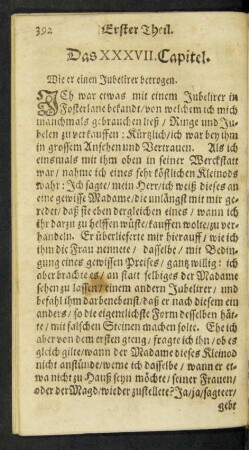 392 Erster Theil.
Das XXXVII. Capitel.
Wie er einen Jubelirer betrogen.
ICh war etwas mit einem Jubelirer in
Fosterlane bekandt/ von welchem ich mich
manchmals gebrauchen ließ/ Ringe und Ju-
belen zu verkauffen: Kürtzlich/ ich war bey ihm
in grossem Ansehen und Vertrauen. Als ich
einsmals mit ihm oben in seiner Werckstatt
war/ nahme ich eines sehr köstlichen Kleinods
wahr: Ich sagte/ mein Herr/ ich weiß dieses an
eine gewisse Madame/ die unlängst mit mir ge-
redet/ daß sie eben dergleichen eines/ wann ich
ihr darzu zu helffen wüste/ kauffen wolte/ zu ver-
handeln. Er überlieferte mir hierauff/ wie ich
ihm die Frau nennete/ dasselbe/ mit Bedin-
gung eines gewissen Preises/ gantz willig: ich
aber brachte es/ an statt selbiges der Madame
sehen zu lassen/ einem andern Jubelirer/ und
befahl ihm darbenebenst/ daß er nach diesem ein
anders/ so die eigentlichste Form desselben hät-
te/ mit falschen Steinen machen solte. Ehe ich
aber von dem ersten gieng/ fragte ich ihn/ ob es
gleich gilte/ wann der Madame dieses Kleinod
nicht anstünde/ weme ich dasselbe/ wann er et-
wa nicht zu Hauß seyn möchte/ seiner Frauen/
oder der Magd/ wieder zustellete? Ja/ ja/ sagte er/
gebt